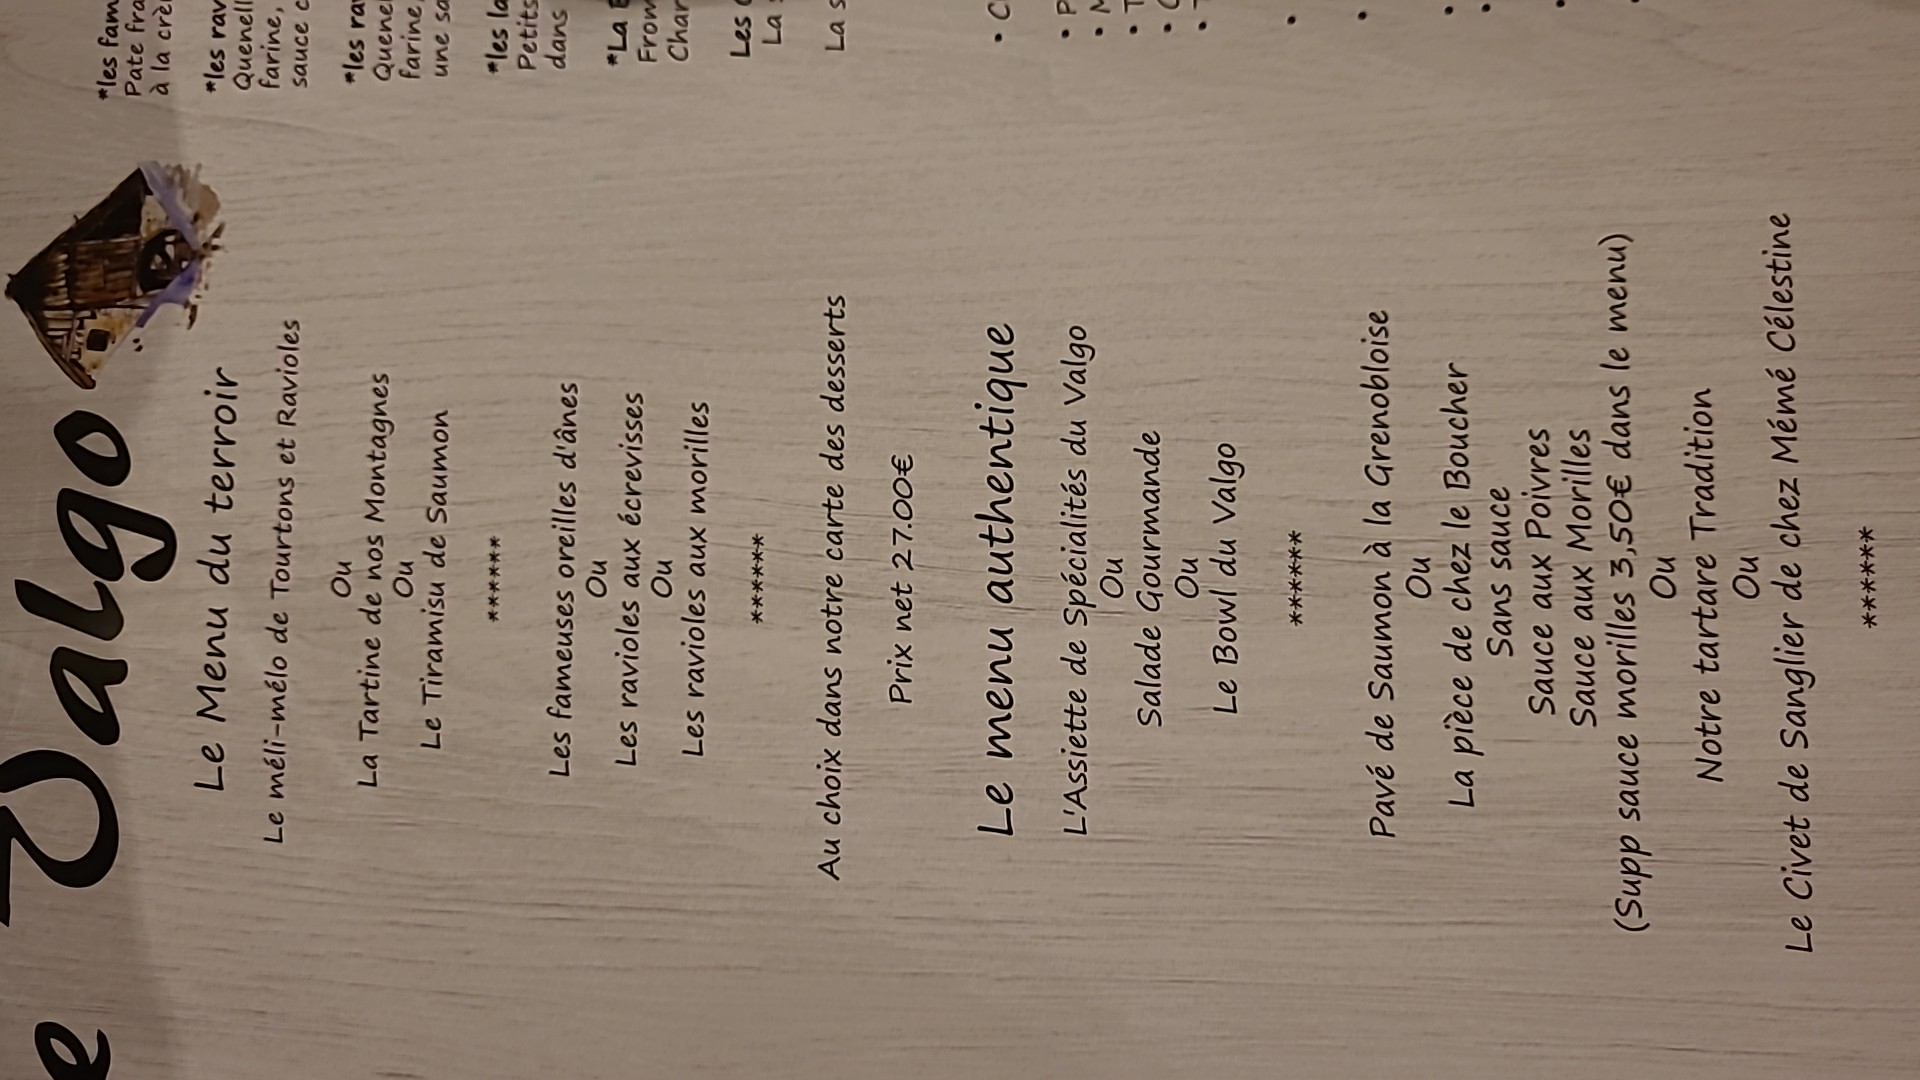 e Valgo
Le Menu du terroir
Le méli-mélo de Tourtons et Ravioles
Ou
La Tartine de nos Montagnes
Ou
Le Tiramisu de Saumon
******
Les fameuses oreilles d'ânes
Ou
Les ravioles aux écrevisses
Ou
Les ravioles aux morilles
******
Au choix dans notre carte des desserts
Prix net 27.00€
Le menu authentique
L'Assiette de Spécialités du Valgo
Ou
Salade Gourmande
Ou
Le Bowl du Valgo
******
Pavé de Saumon à la Grenobloise
Ou
La pièce de chez le Boucher
Sans sauce
Sauce aux Poivres
Sauce aux Morilles
(Supp sauce morilles 3,50€ dans le menu)
Ou
Notre tartare Tradition
Ou
Le Civet de Sanglier de chez Mémé Célestine
******
*les fam
Pate fra
à la crè
*les rav
Quenell
farine,
sauce c
*les ra
Quenel
farine,
une sa
*les la
Petits
dans
*La
From
Char
Les
La
La s